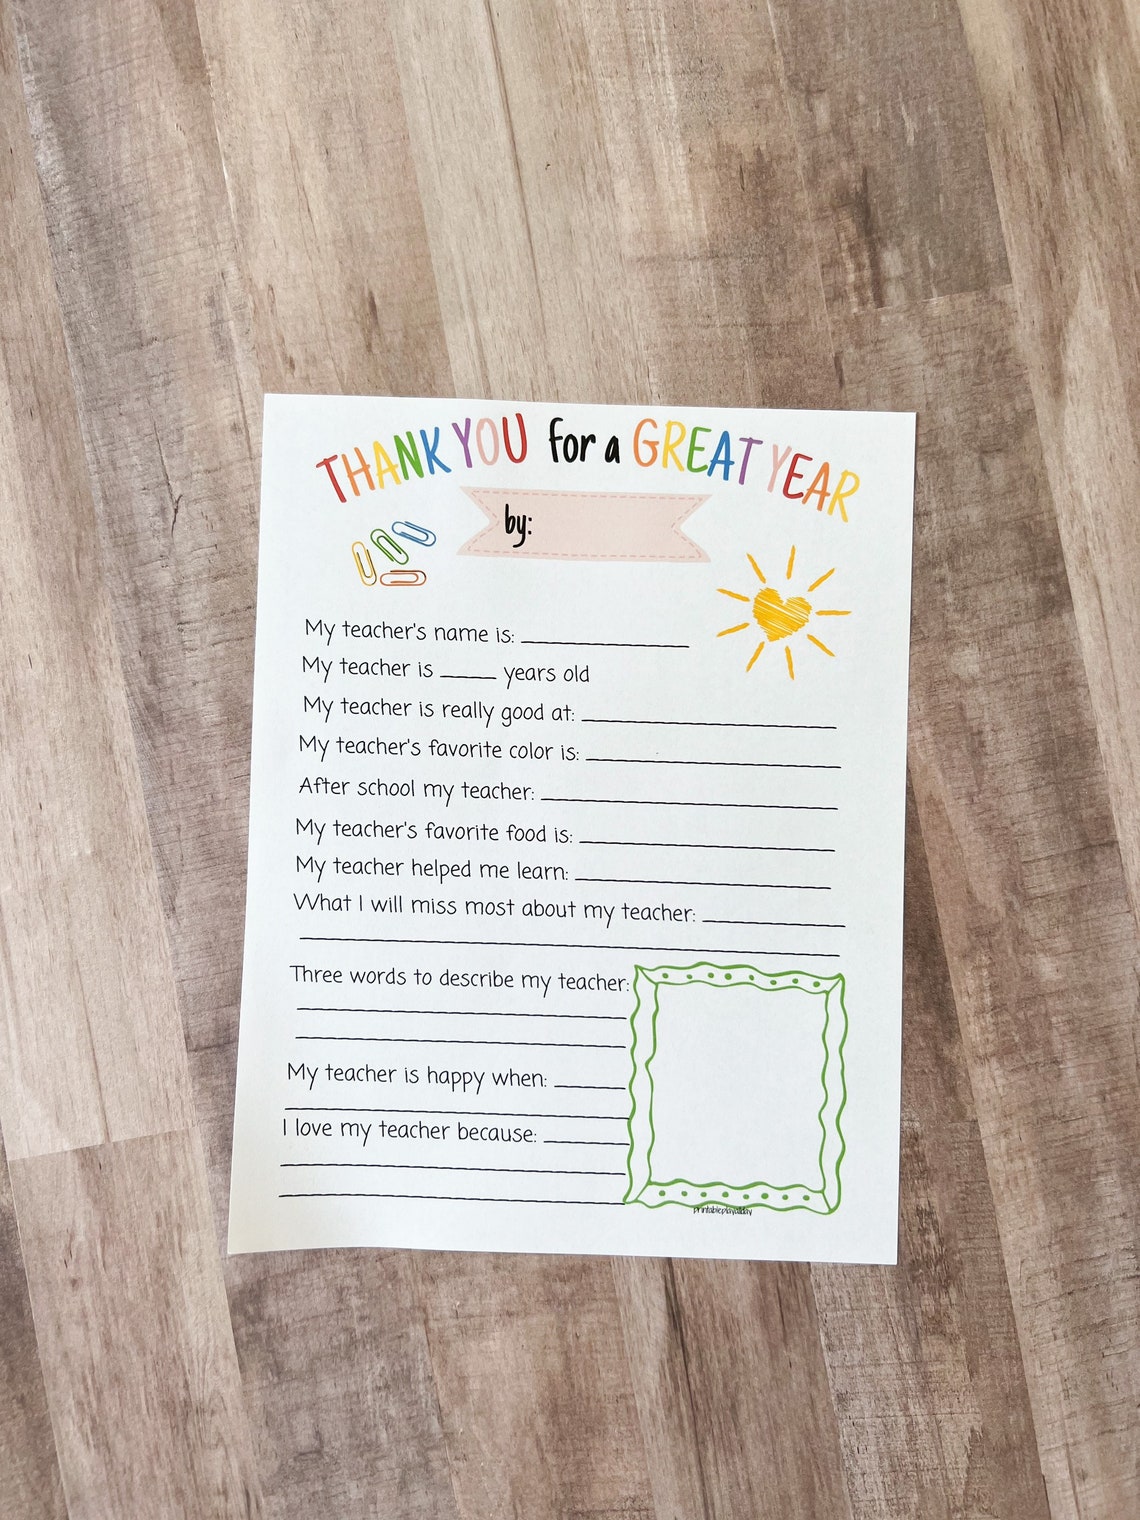 THANK YOU for a GREAT YEAR
by:
My teacher's name is: ____________
My teacher is ____ years old
My teacher is really good at: __________________
My teacher's favorite color is: __________________
After school my teacher: _____________________
My teacher's favorite food is: __________________
My teacher helped me learn: __________________
What I will miss most about my teacher: __________
______________________________________
Three words to describe my teacher:
_______________________
_______________________
My teacher is happy when: _____
________________________
I love my teacher because: ______
________________________
________________________
printableplayallday